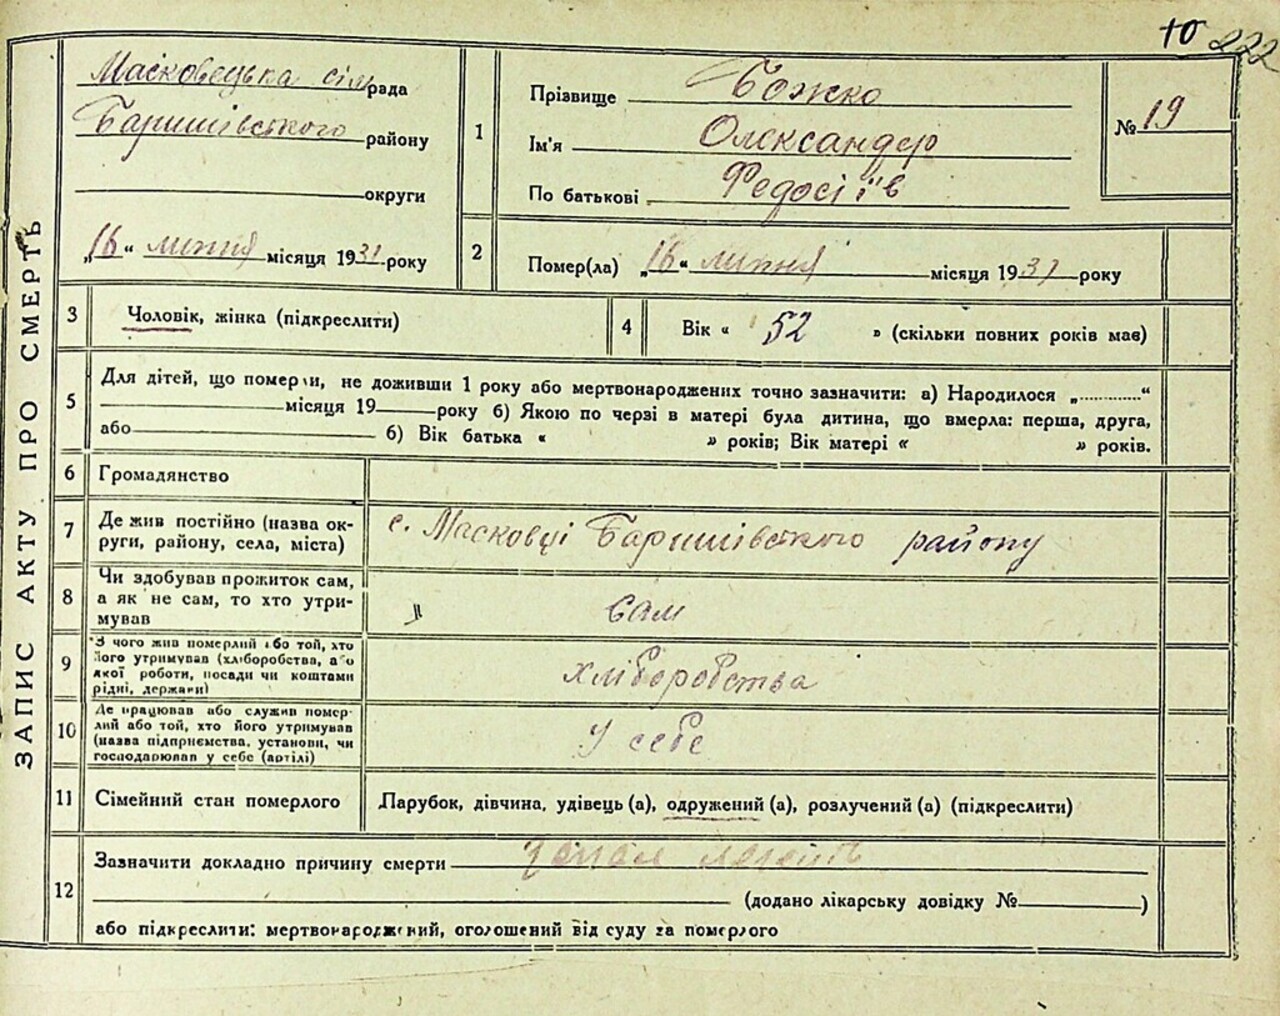 10 222
ЗАПИС АКТУ ПРО СМЕРТЬ
Масковецька сільрада
Баришівського району
округи
„16“ липня місяця 1931 року
1
Прізвище Божко
Ім'я Олександер
По батькові Федосіїв
№ 19
2
Помер(ла) „16“ липня місяця 1931 року
3 Чоловік, жінка (підкреслити)
4 Вік « 52 » (скільки повних років має)
5
Для дітей, що померли, не доживши 1 року або мертвонароджених точно зазначити: а) Народилося „............“
місяця 19 року б) Якою по черзі в матері була дитина, що вмерла: перша, друга,
або б) Вік батька « » років; Вік матері « » років.
6 Громадянство
7 Де жив постійно (назва ок-
руги, району, села, міста)
с. Масковці Баришівського району
8 Чи здобував прожиток сам,
а як не сам, то хто утри-
мував
сам
9 З чого жив померлий або той, хто
його утримував (хліборобства, або
якої роботи, посади чи коштами
рідні, держави)
хліборобства
10 Де працював або служив помер-
лий або той, хто його утримував
(назва підприємства, установи, чи
господарював у себе (артілі)
у себе
11 Сімейний стан померлого
Парубок, дівчина, удівець (а), одружений (а), розлучений (а) (підкреслити)
12
Зазначити докладно причину смерти
(додано лікарську довідку № )
або підкреслити: мертвонароджений, оголошений від суду за померлого